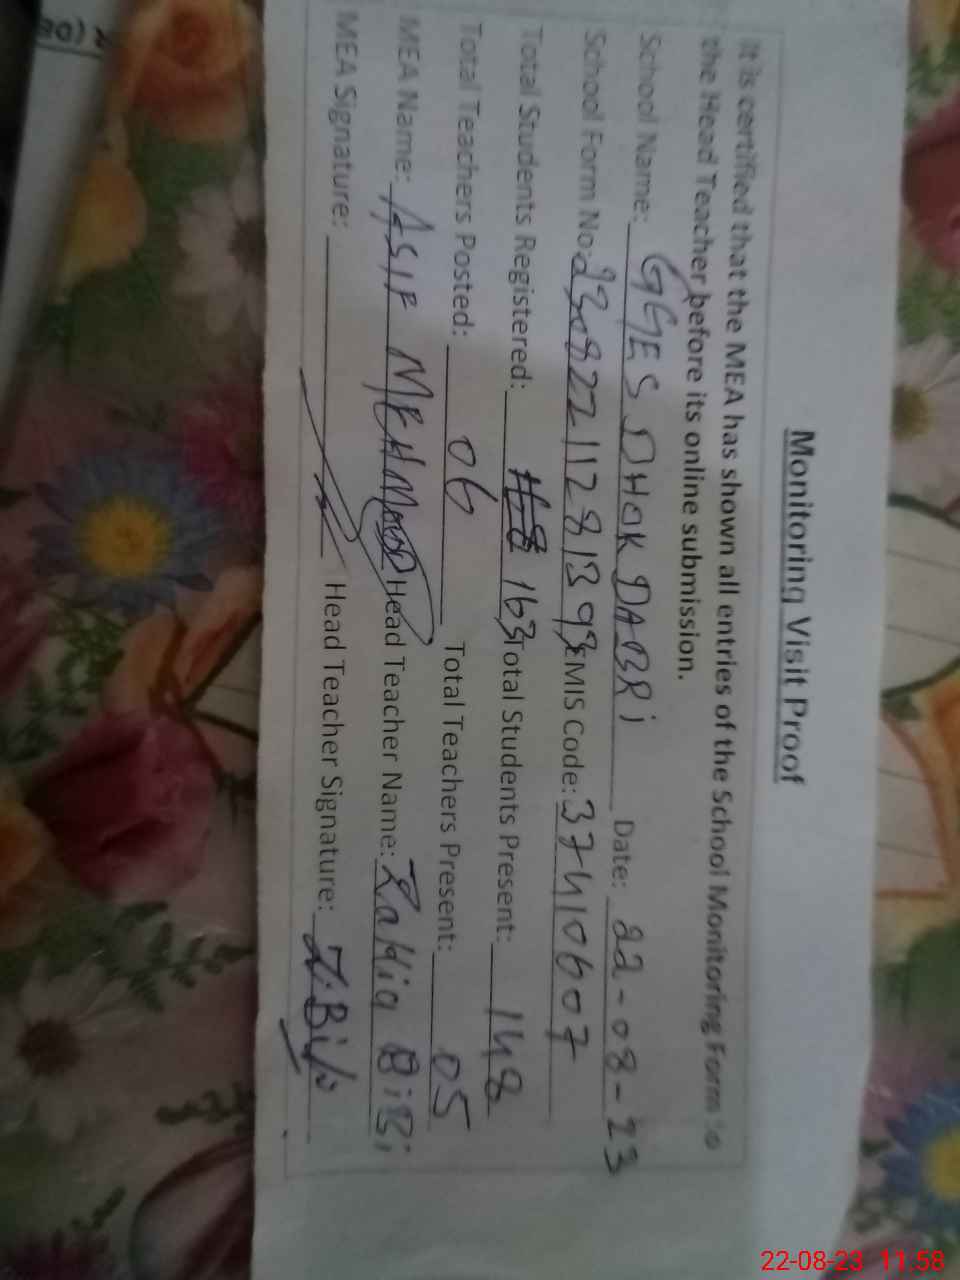 Monitoring Visit Proof
It is certified that the MEA has shown all entries of the School Monitoring Form to
the Head Teacher before its online submission.
School Name: GGES DHOK DABRI Date: 22-08-23
School Form No: EMIS Code: 37410607
Total Students Registered: 163 Total Students Present: 148
Total Teachers Posted: 06 Total Teachers Present: 05
MEA Name: ASIF MEHMOOD Head Teacher Name: Zakia BiBi
MEA Signature: Head Teacher Signature: Z.Bibi
22-08-23 11:58